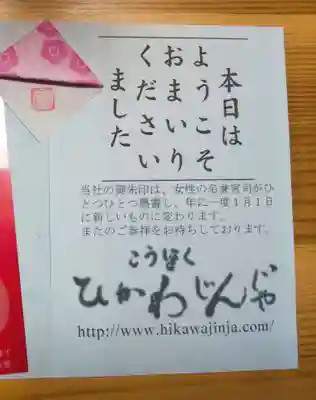 本日は
ようこそ
おまいり
くださり
ました
当社の御朱印は、女性の名誉宮司がひ
とつひとつ墨書し、年に一度1月1日
に新しいものに変わります。
またのご参拝をお待ちしております。
こうほく
ひかわじんじゃ
http://www.hikawajinja.com/